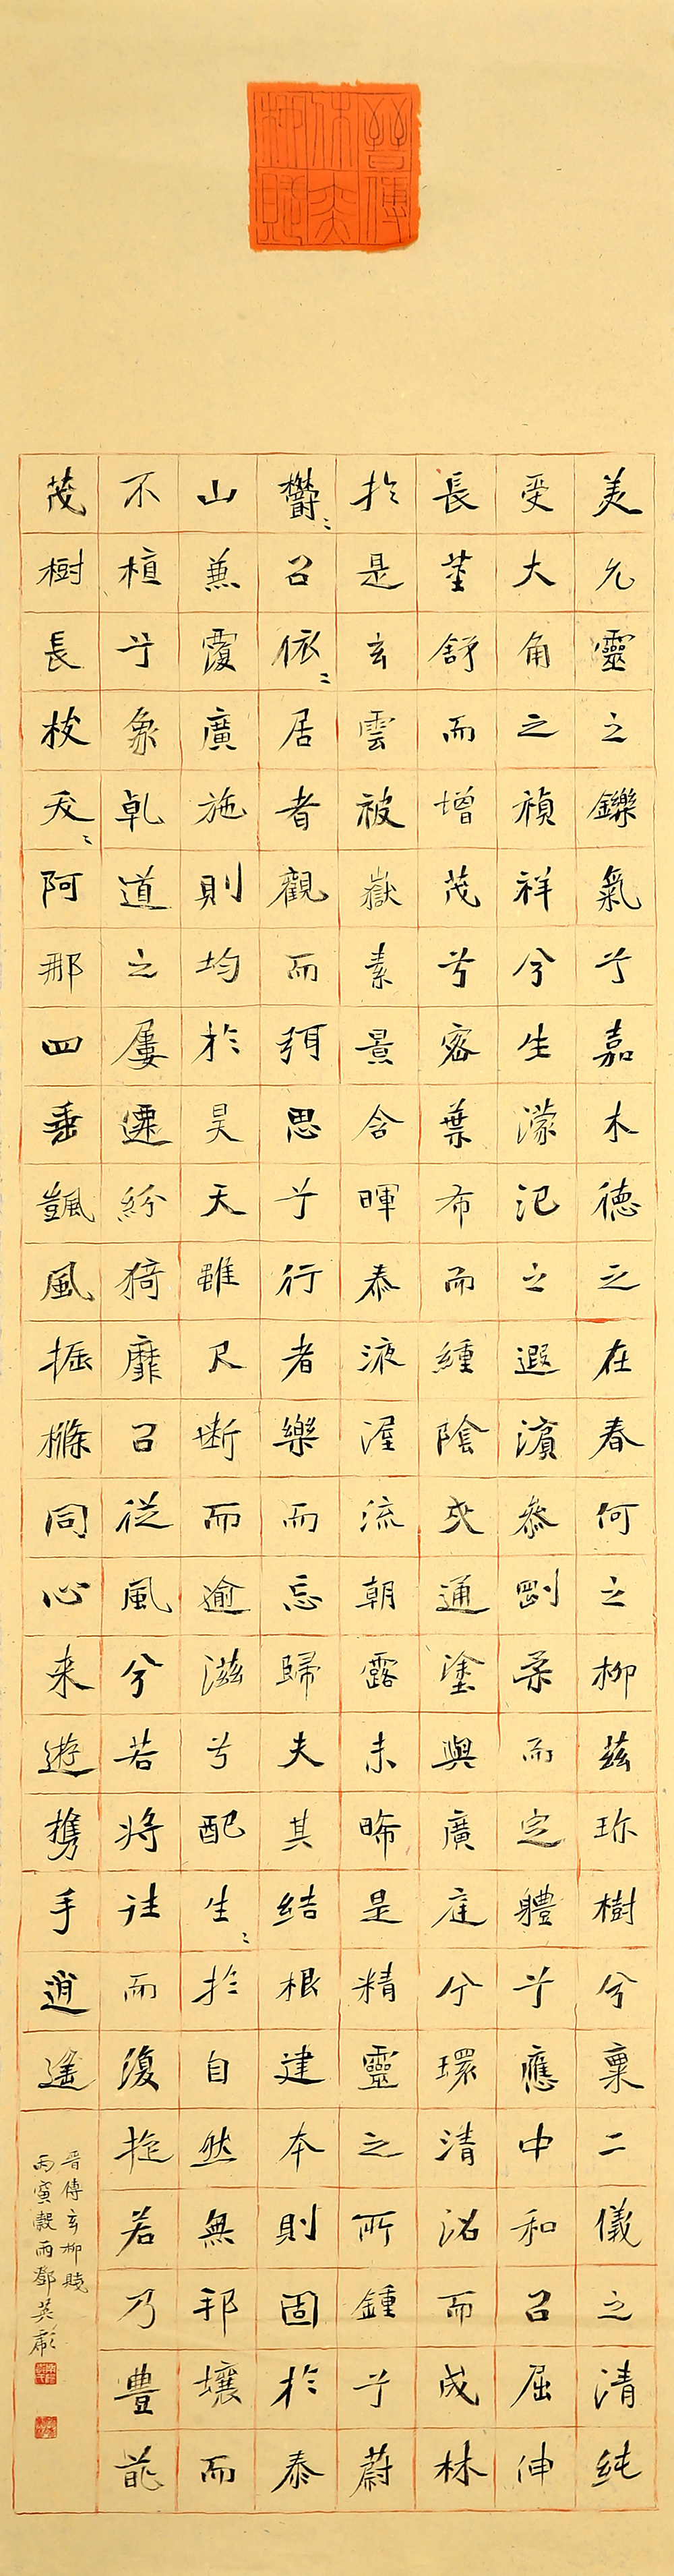 晉傅休奕柳賦
美允靈之鑠氣兮嘉木徳之在春何之柳茲珎樹兮稟二儀之清純
受大角之禎祥兮生濛汜之遐濱參剛柔而定體兮應中和㠯屈伸
長莖舒而增茂兮密葉布而緟陰交通塗與廣庭兮環清沼而成林
於是玄雲被嶽素景含暉泰液渥流朝露未晞是精靈之所鍾兮蔚
鬱〻㠯依〻居者觀而弭思兮行者樂而忘歸夫其結根建本則固於泰
山兼覆廣施則均於昊天雖尺斷而逾滋兮配生〻於自然無邦壤而
不植兮象乾道之屢遷紛猗靡㠯從風兮若將往而復旋若乃豊葩
茂樹長枝夭〻阿那四垂颽風振條同心来遊携手逍遙
晉傅玄柳賦
丙寅穀雨鄧英彪